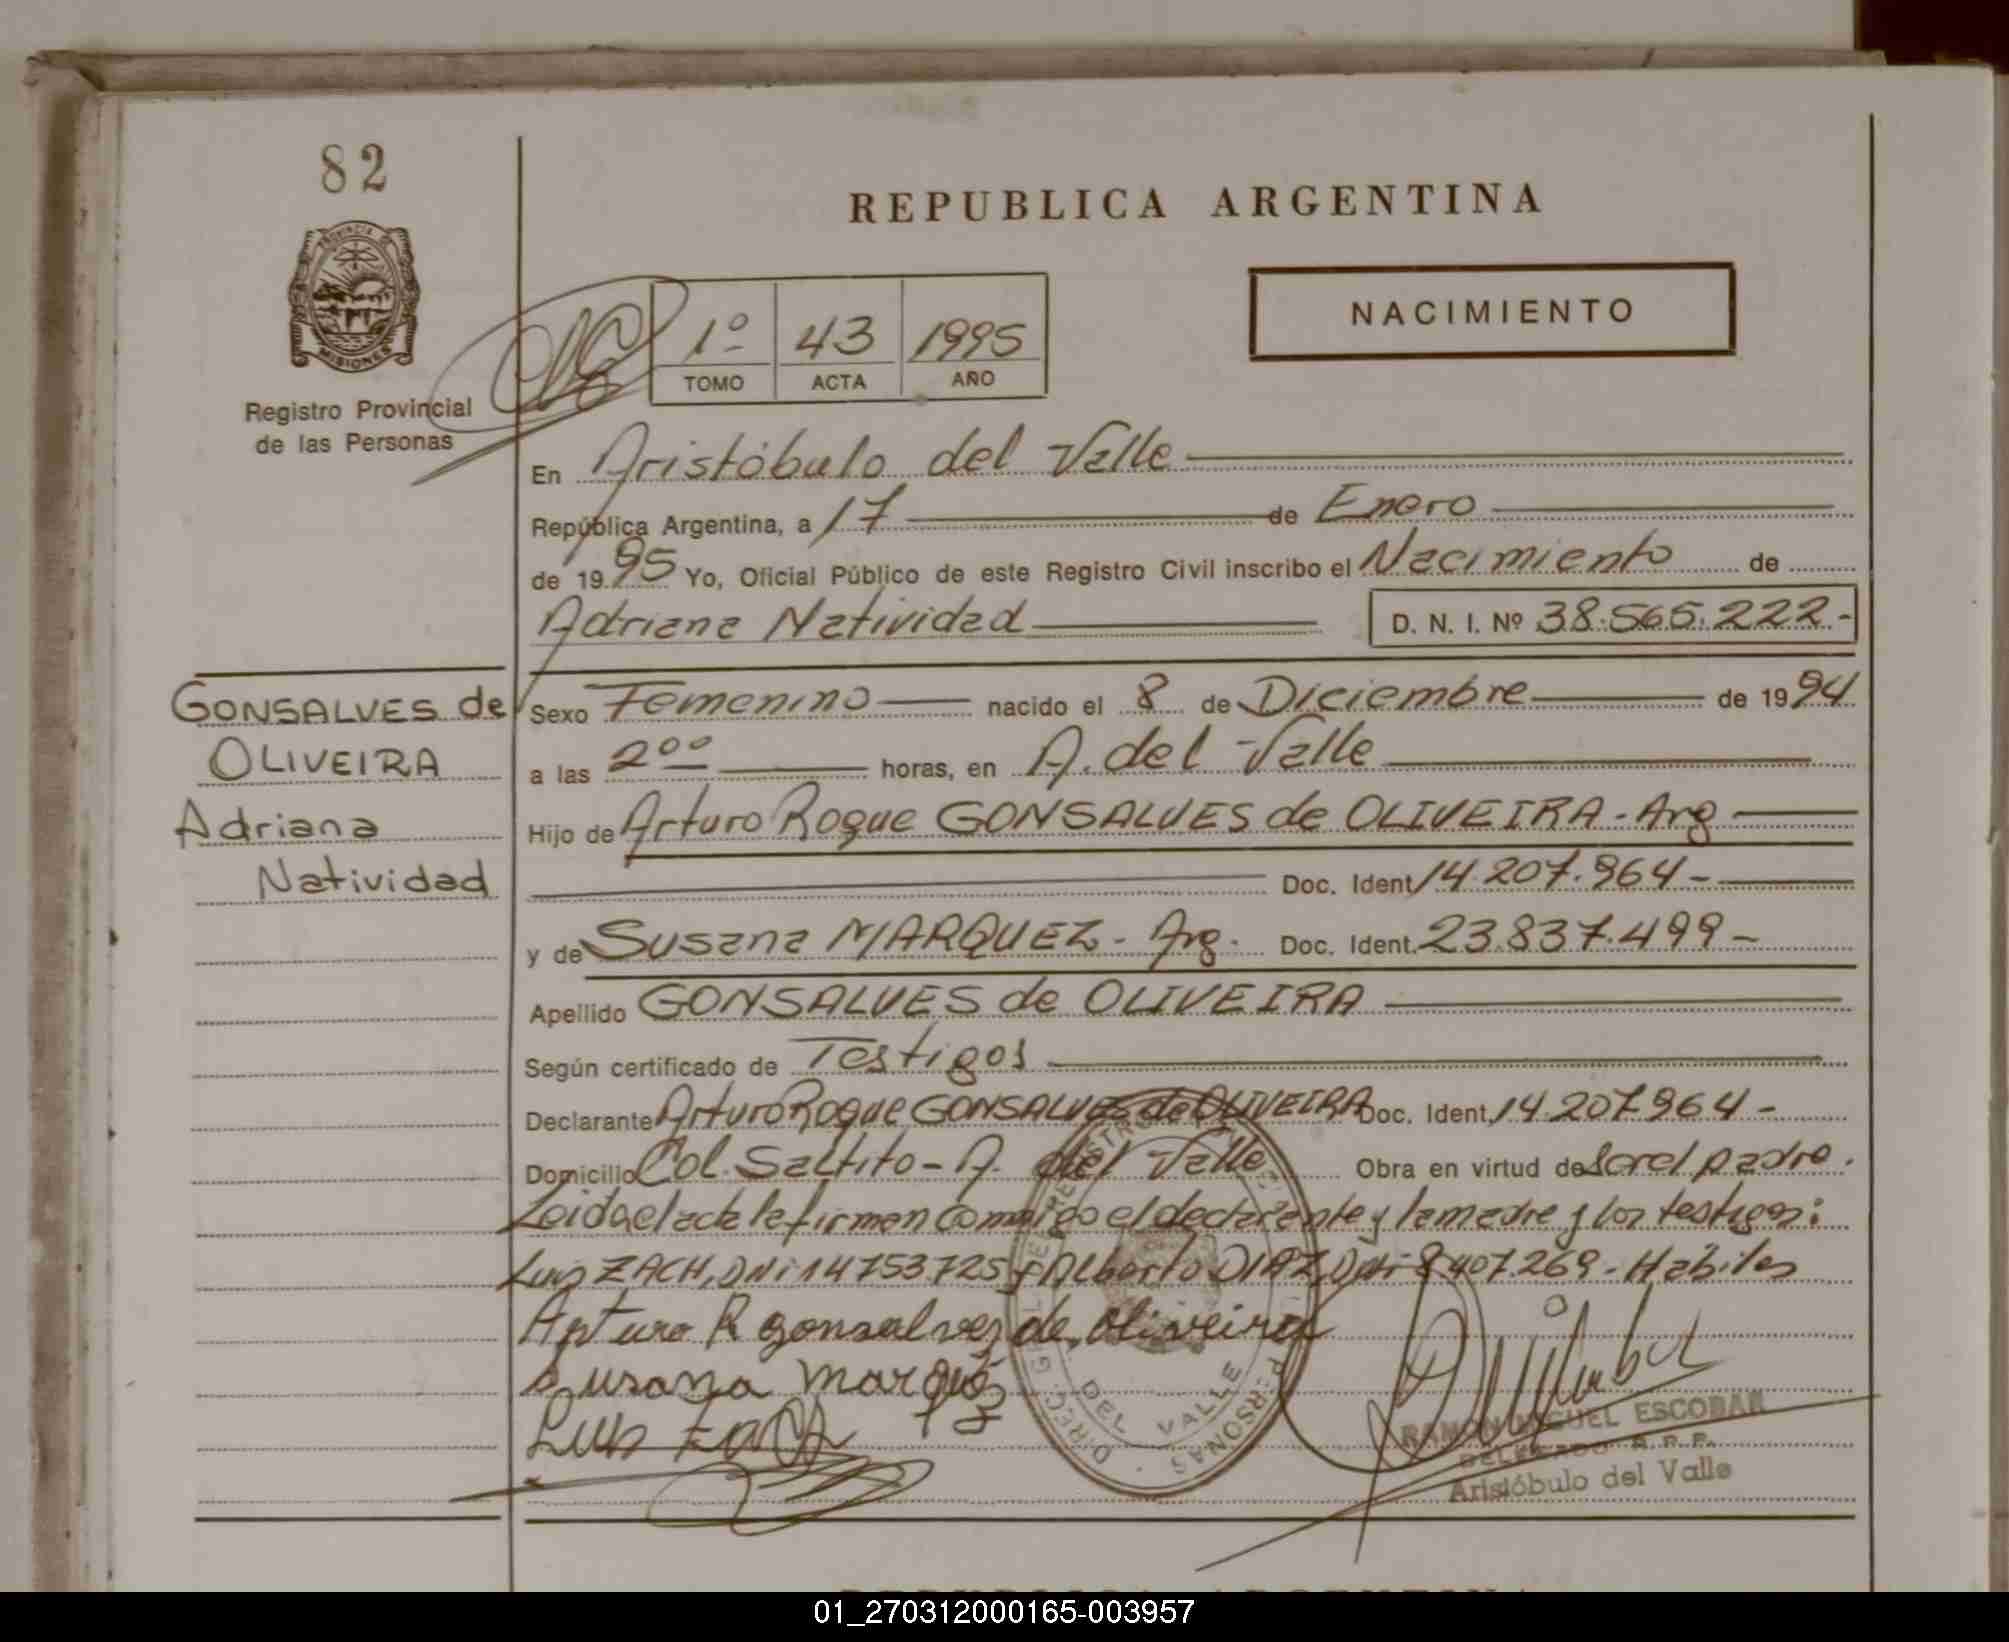 82
REPUBLICA ARGENTINA
PROVINCIA DE
MISIONES
NACIMIENTO
1º 43 1995
TOMO ACTA AÑO
Registro Provincial
de las Personas
En Aristóbulo del Valle
República Argentina, a 17 de Enero
de 1995 Yo, Oficial Público de este Registro Civil inscribo el Nacimiento de
Adriana Natividad D. N. I. Nº 38.565.222.-
GONSALVES de
OLIVEIRA
Adriana
Natividad
Sexo Femenino nacido el 8 de Diciembre de 1994
a las 2ºº horas, en A. del Valle
Hijo de Arturo Roque GONSALVES de OLIVEIRA - Arg
Doc. Ident. 14.207.964-
y de Susana MARQUEZ - Arg. Doc. Ident. 23.837.499-
Apellido GONSALVES de OLIVEIRA
Según certificado de Testigos
Declarante Arturo Roque GONSALVES de OLIVEIRA Doc. Ident. 14.207.964-
Domicilio Col. Saltito - A. del Valle Obra en virtud de ser el padre.
Leida el acta la firman conmigo el declarante y la madre y los testigos:
Luis ZACH, DNi 14753725 y Alberto DIAZ DNi 8.407.269 - Habiles
Arturo R gonsalves de oliveira
Susana Marquez
Luis Zach
DIREC. GRAL. DEL PERSONAS
DEL VALLE
RAMON MIGUEL ESCOBAR
DELEGADO R.P.P.
Aristóbulo del Valle
01_270312000165-003957